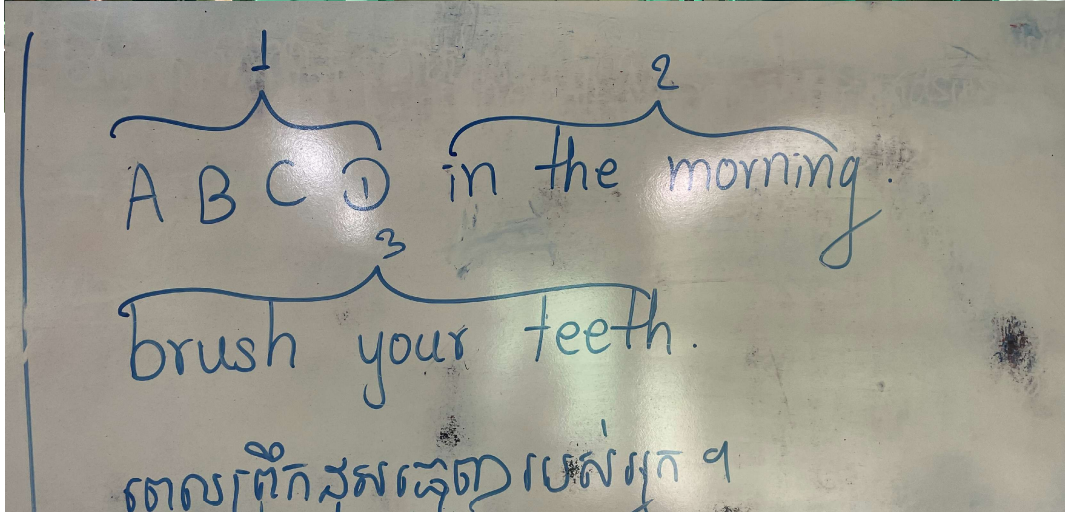 1 2
A B C ① in the morning.
3
brush your teeth.
ពេលព្រឹកដុសធ្មេញរបស់អ្នក ។